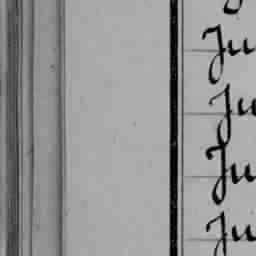 Ju
Ju
Ju
Ju